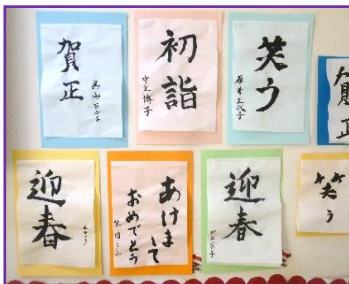 賀正
初詣
笑う
賀正
迎春
あけまして
おめでとう
迎春
笑う